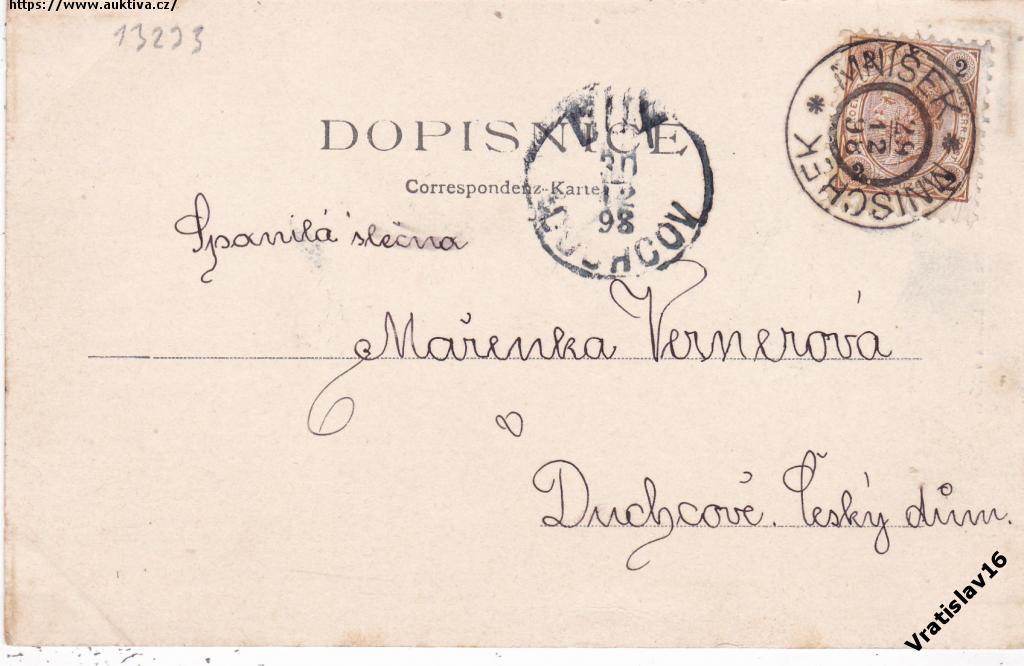 https://www.auktiva.cz/
13233
DOPISNICE
Correspondenz-Karte
MNÍŠEK * MNISCHEK *
29
12
98
2
2
DUX
30
12
98
DUCHCOV
Spanilá slečna
Mařenka Vernerová
v
Duchcově. Český dům.
Vratislav16